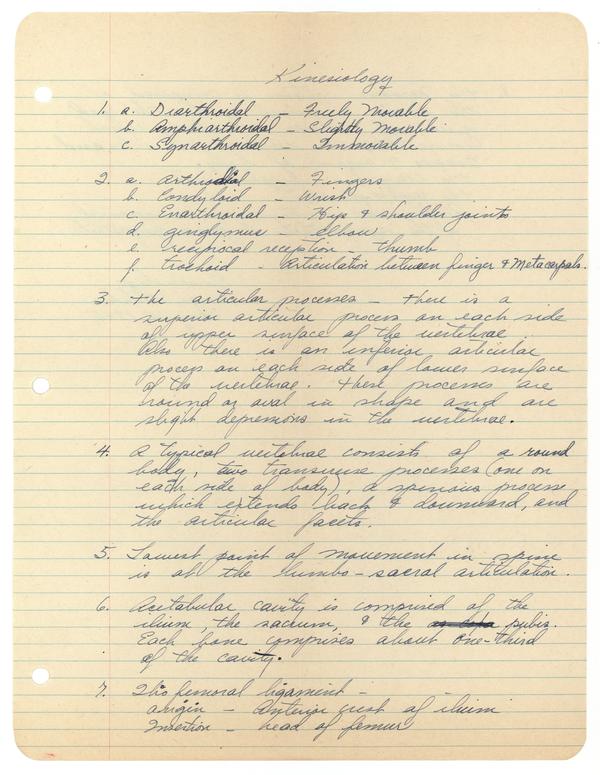 Kinesiology
1. a. Diarthroidal - Freely Movable
b. Amphiarthroidal - Slightly Movable
c. Synarthroidal - Immovable
2. a. Arthrodial - Fingers
b. Condyloid - Wrist
c. Enarthroidal - Hip & shoulder joints
d. ginglymus - elbow
e. reciprocal reception - thumb
f. trochoid - articulation between finger & Metacarpals.
3. the articular processes - there is a
superior articular process on each side
of upper surface of the vertebrae.
Also there is an inferior articular
process on each side of lower surface
of the vertebrae. These processes are
round or oval in shape and are
slight depressions in the vertebrae.
4. A typical vertebrae consists of a round
body, two transverse processes (one on
each side of body), a spinous process
which extends back & downward, and
the articular facets.
5. Lowest point of movement in spine
is at the lumbo-sacral articulation.
6. Acetabular cavity is comprised of the
ilium, the sacrum, & the pubis.
Each bone comprises about one-third
of the cavity.
7. Ilio femoral ligament -
Origin - Anterior crest of ilium
Insertion - head of femur